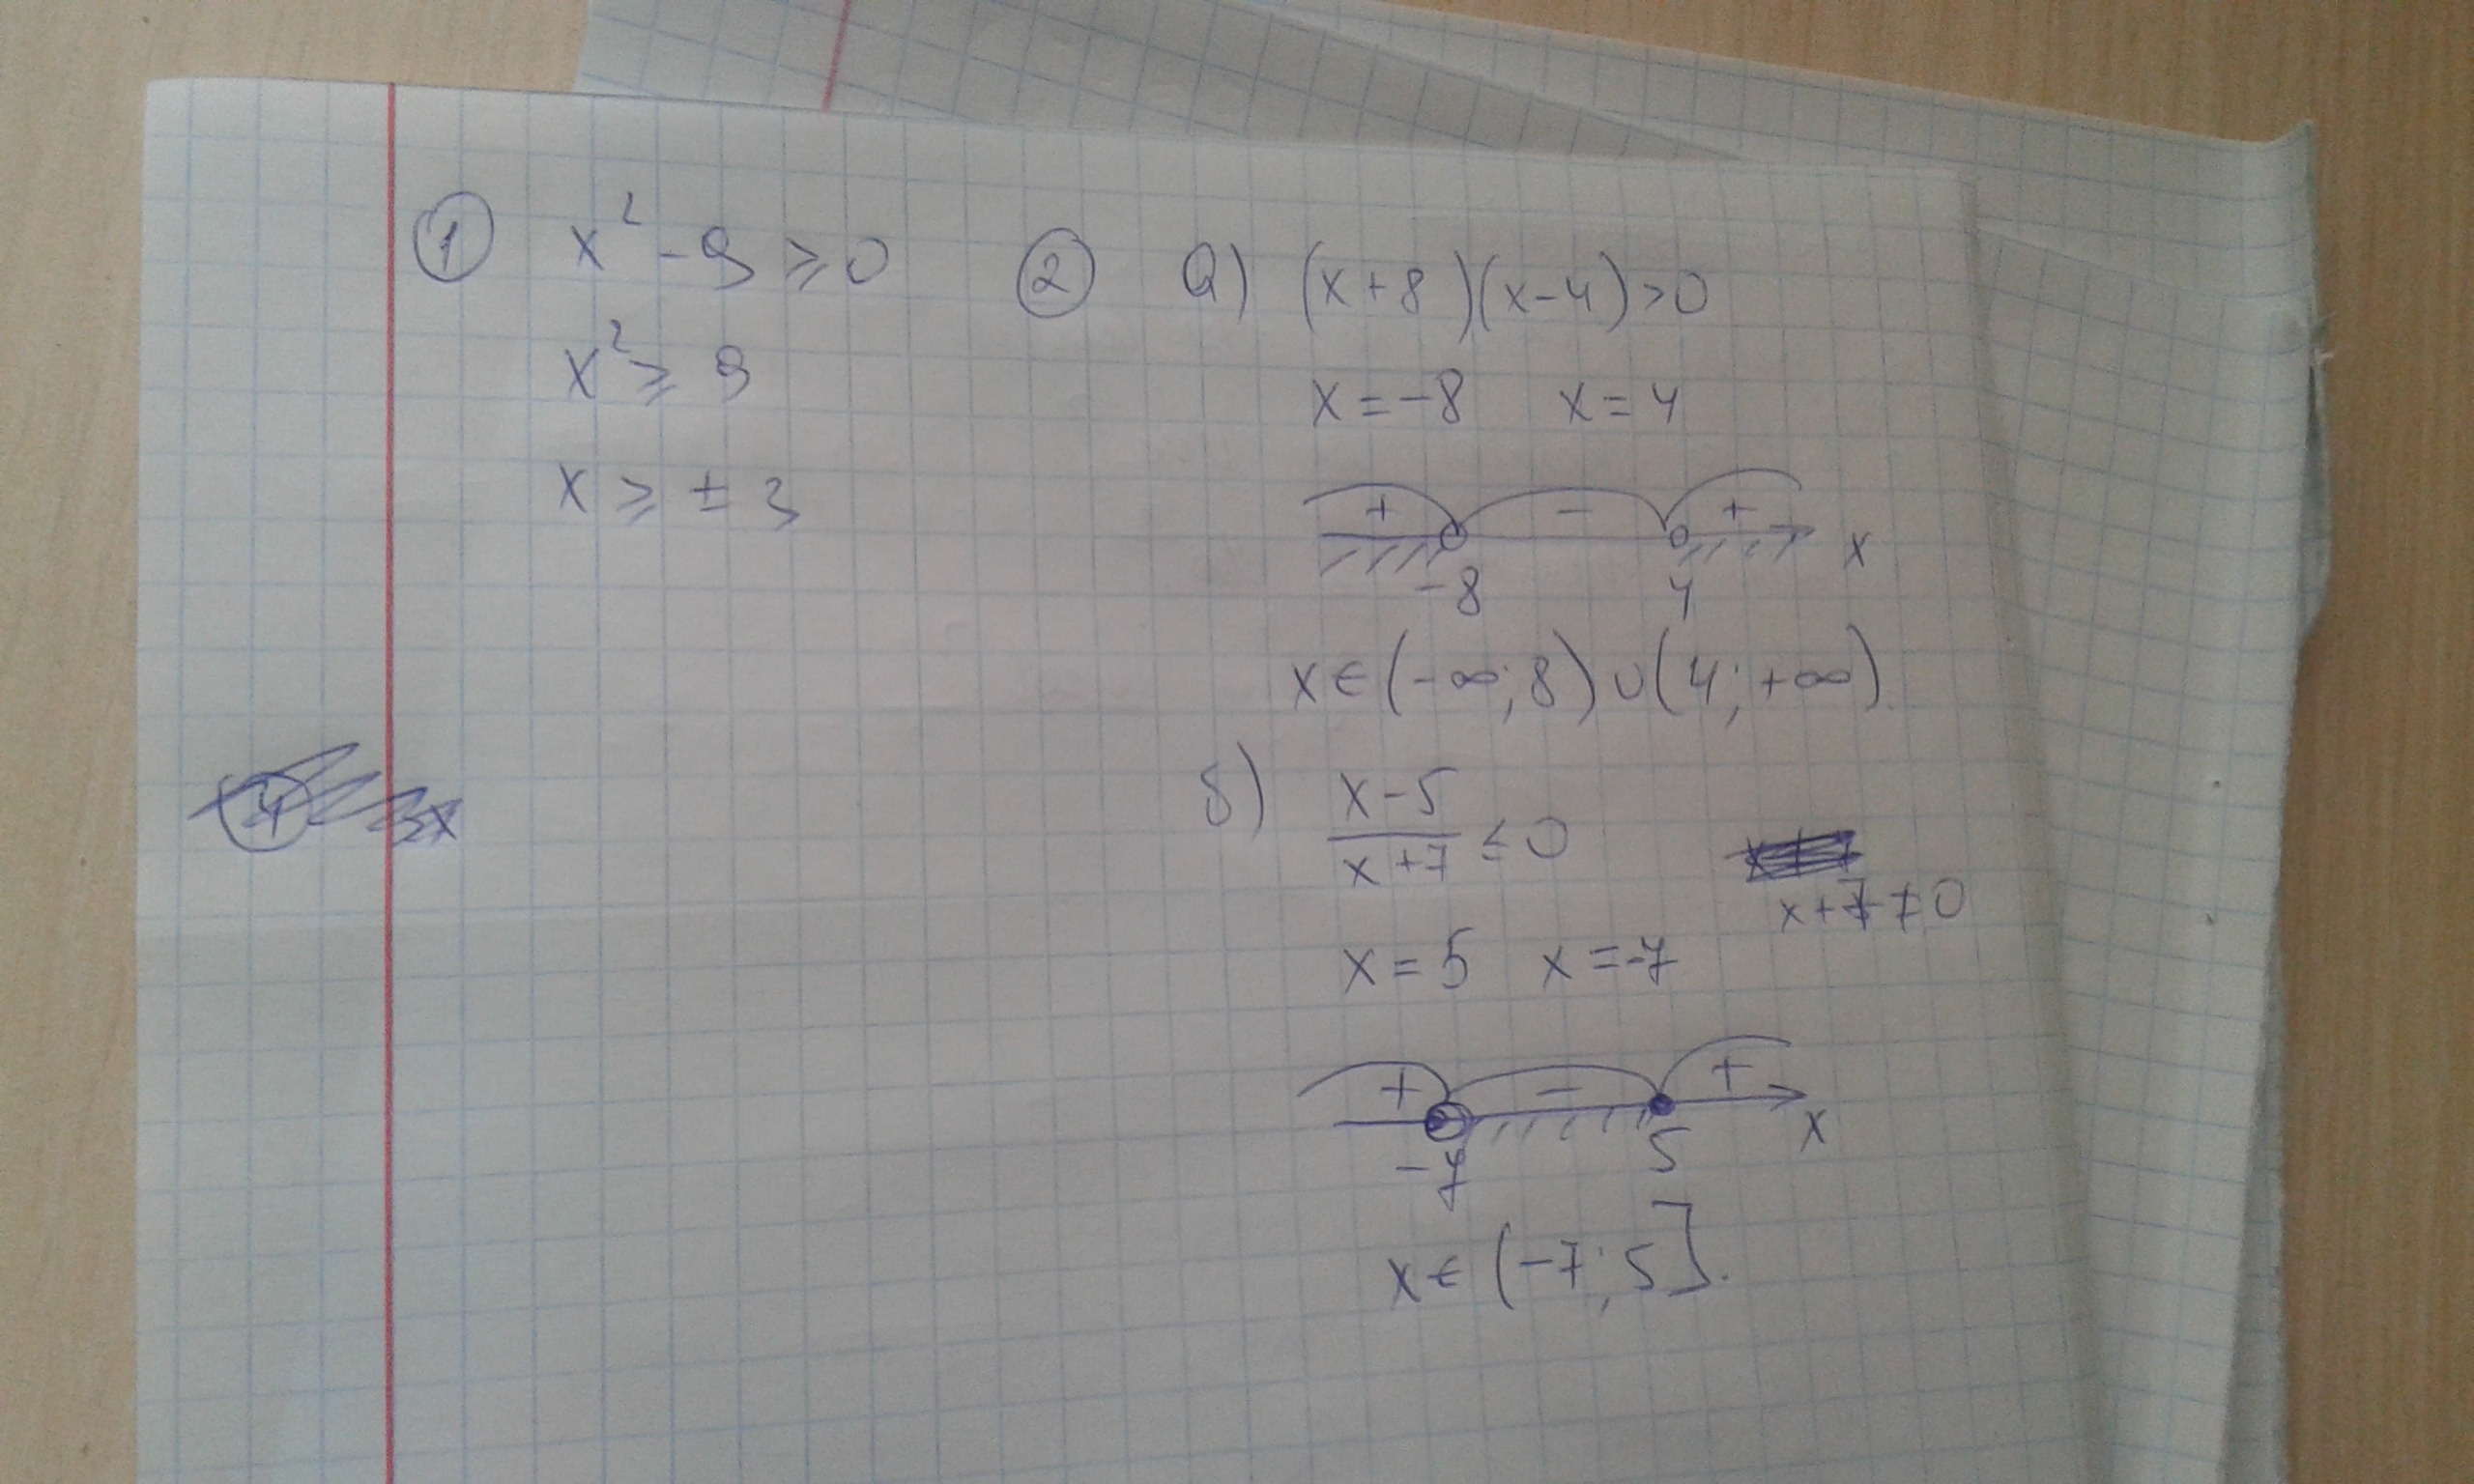 ① x² - 9 ⩾ 0
x² ⩾ 9
x ⩾ ± 3
② а) (x+8)(x-4)>0
x=-8 x=4
+ - +
-8 4 x
x∈(-∞;8)∪(4;+∞).
б) (x-5)/(x+7) ≤ 0
x+7≠0
x=5 x=-7
+ - +
-7 5 x
x∈(-7;5].
④ 3x